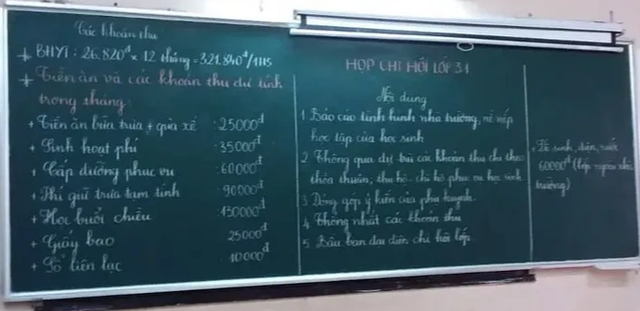 Các khoản thu
+ BHYT: 26.820đ x 12 tháng = 321.840đ/1HS
+ Tiền ăn và các khoản thu dự tính
trong tháng:
+ Tiền ăn bữa trưa + quà xế : 25000đ
+ Sinh hoạt phí : 35000đ
+ Cấp dưỡng phục vụ : 60000đ
+ Phí giữ trưa tạm tính : 90000đ
+ Học buổi chiều : 130000đ
+ Giấy bao 25000đ
+ Sổ liên lạc 10000đ
HỌP CHI HỘI LỚP 31
Nội dung
1 Báo cáo tình hình nhà trường, nề nếp
học tập của học sinh
2 Thông qua dự trù các khoản thu chi theo
thỏa thuận; thu hộ - chi hộ phục vụ học sinh
3 Đóng góp ý kiến của phụ huynh
4 Thống nhất các khoản thu
5 Bầu ban đại diện chi hội lớp.
+ Vệ sinh, điện, nước
60000đ (lớp ngoài nhà
trường)